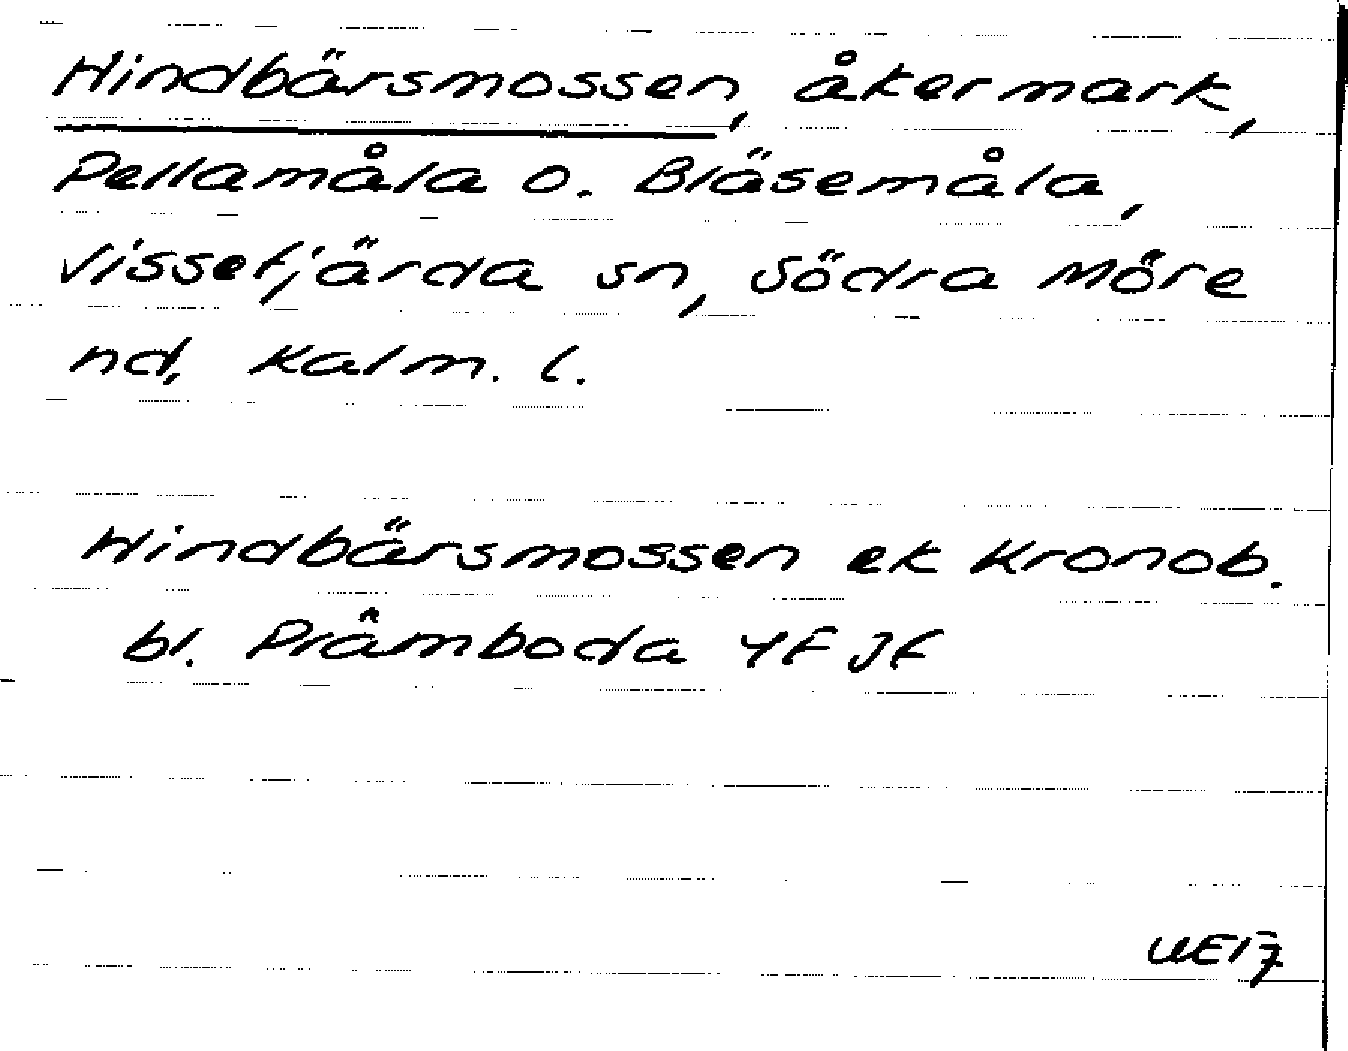 Hindbärsmossen, åkermark,
Pellamåla o. Bläsemåla,
Vissefjärda sn, Södra Möre
hd, Kalm. l.
Hindbärsmossen ek Kronob.
bl. Pråmboda 4F JF
UE17